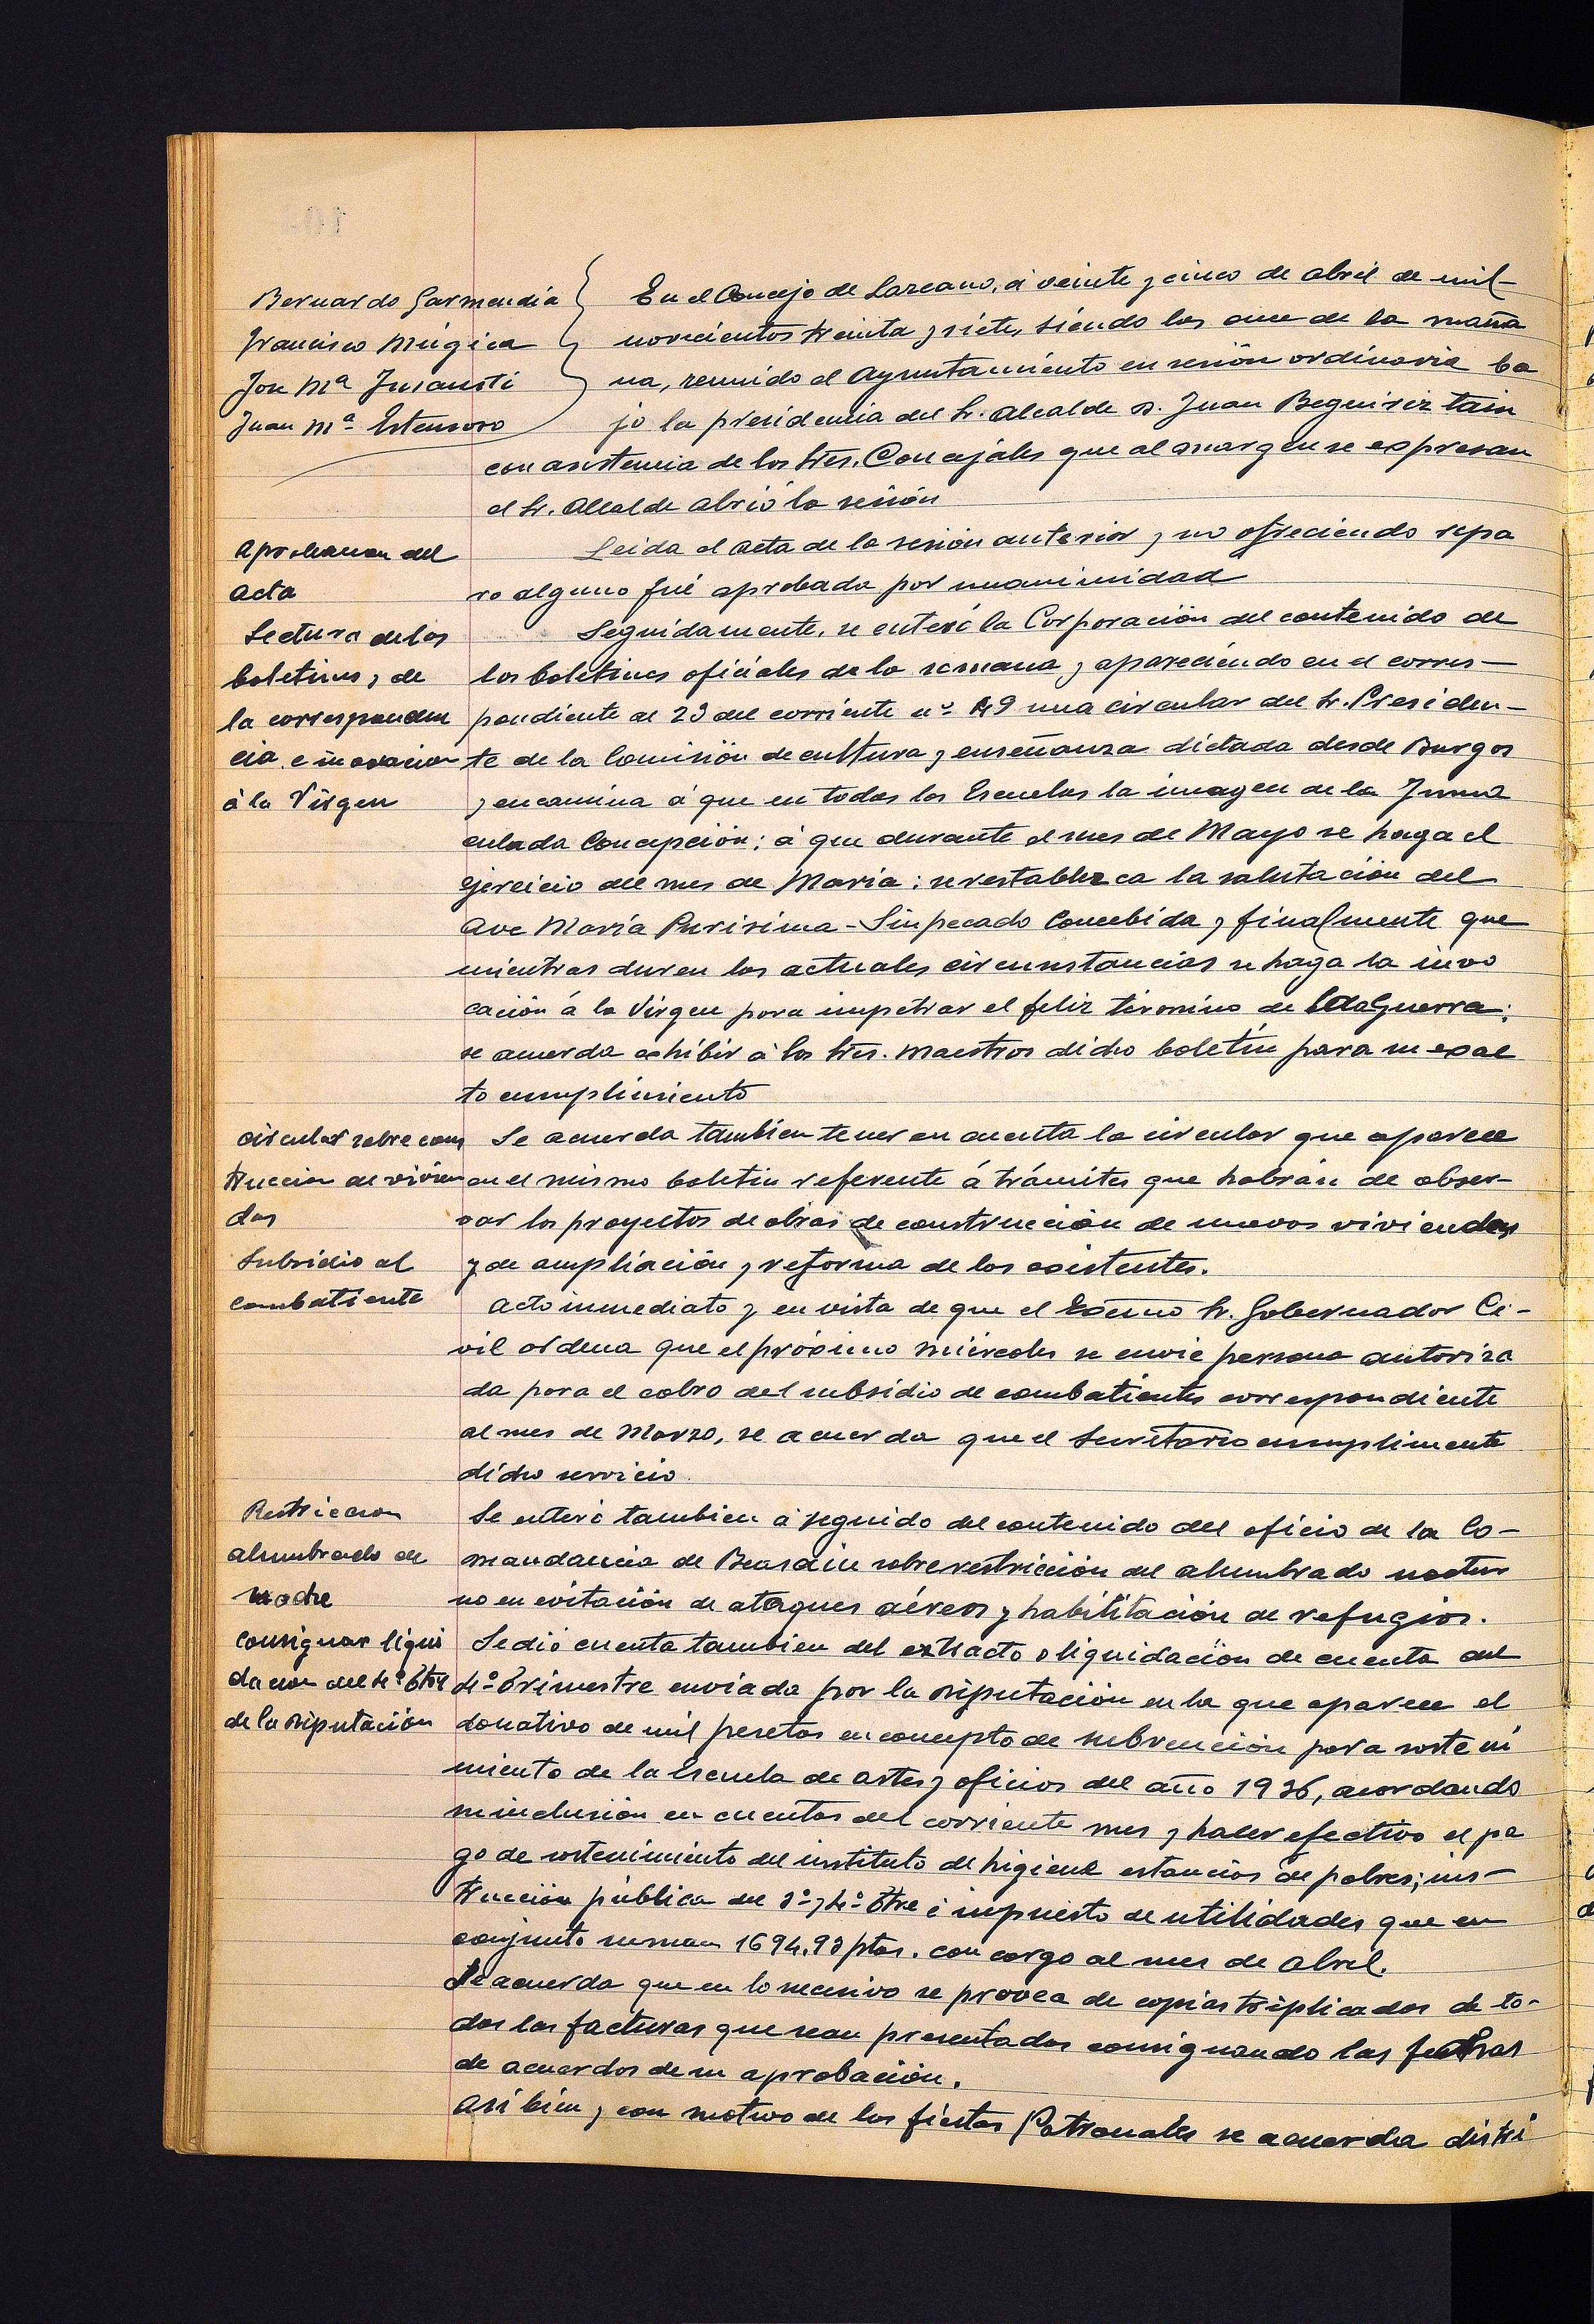 Bernardo Garmendia
Francisco Múgica
José Mª Insausti
Juan Mª Estensoro
En el Concejo de Lazcano, á veinte y cinco de abril de mil-
novecientos treinta y siete, siendo las once de la maña
na, reunido el Ayuntamiento en sesión ordinaria ba
jo la presidencia del Sr. Alcalde D. Juan Beguiristain
con asistencia de los Sres. Concejales que al margen se expresan
el Sr. Alcalde abrió la sesión
Aprobacion del
acta
Leida el acta de la sesión anterior y no ofreciendo repa
ro alguno fué aprobada por unanimidad
Lectura de los
boletines y de
la corresponden
cia e invocacion
á la Virgen
Seguidamente, se enteró la Corporación del contenido de
los boletines oficiales de la semana y apareciendo en el corres-
pondiente al 23 del corriente nº 49 una circular del Sr. Presiden-
te de la Comisión de cultura y enseñanza dictada desde Burgos
y encamina á que en todas las Escuelas la imagen de la Inma
culada Concepción; á que durante el mes de Mayo se haga el
ejercicio del mes de María; se restablezca la salutación del
Ave María Purísima - Sin pecado Concebida y finalmente que
mientras duren las actuales circunstancias se haga la invo
cación á la Virgen para impetrar el feliz término de la Guerra;
se acuerda exhibir á los Sres. Maestros dicho boletín para su exac
to cumplimiento
Circular sobre cons
truccion de vivien
das
Se acuerda tambien tener en cuenta la circular que aparece
en el mismo boletin referente á trámites que habrán de obser-
var los proyectos de obras de construcción de nuevas viviendas
y de ampliación y reforma de las existentes.
Subsidio al
combatiente
Acto inmediato y en vista de que el Excmo Sr. Gobernador Ci-
vil ordena que el próximo miércoles se envie persona autoriza
da para el cobro del subsidio de combatientes correspondiente
al mes de Marzo, se acuerda que el Secretario cumplimente
dicho servicio.
Restriccion
alumbrado de
noche
Se enteró tambien á seguido del contenido del oficio de la Co-
mandancia de Beasain sobre restricción del alumbrado noctur
no en evitación de ataques aéreos y habilitación de refugios.
Consignar liqui
dacion del 4º Ttre
de la Diputación
Se dió cuenta tambien del extracto o liquidación de cuenta del
4º Trimestre enviada por la Diputación en la que aparece el
donativo de mil pesetas en concepto de subvención para sosteni
miento de la Escuela de artes y oficios del año 1936, acordando
su inclusión en cuentas del corriente mes y hacer efectivo el pa
go de sostenimiento del instituto de higiene estancias de pobres; ins-
trucción pública del 3º y 4º Ttre é impuesto de utilidades que en
conjunto suman 1694.93 ptas. con cargo al mes de abril.
Se acuerda que en lo sucesivo se provea de copias triplicadas de to-
das las facturas que sean presentadas consignando las fechas
de acuerdos de su aprobación.
Así bien y con motivo de las fiestas Patronales se acuerda distri